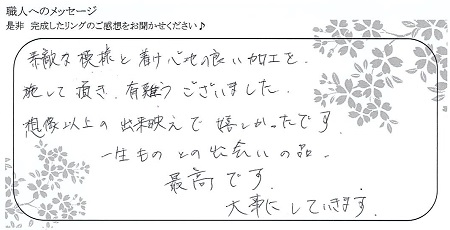 職人へのメッセージ
是非 完成したリングのご感想をお聞かせください♪
素敵な模様と着け心地の良い加工を
施して頂き、有難うございました。
想像以上の出来映えで嬉しかったです。
一生ものとの出会いの品。
最高です。
大事にしていきます。